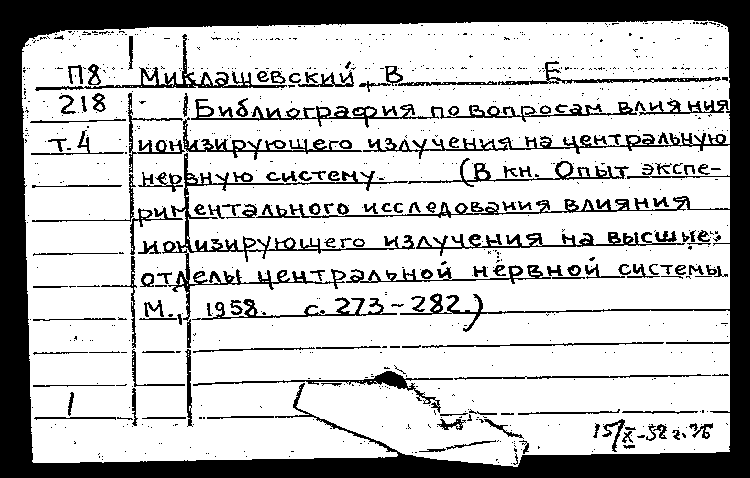 П8 Миклашевский, В Е
218 Библиография по вопросам влияния
т.4 ионизирующего излучения на центральную
нервную систему. (В кн. Опыт экспе-
риментального исследования влияния
ионизирующего излучения на высшие
отделы центральной нервной системы.
М., 1958. с. 273-282.)
1
15/X-58г.